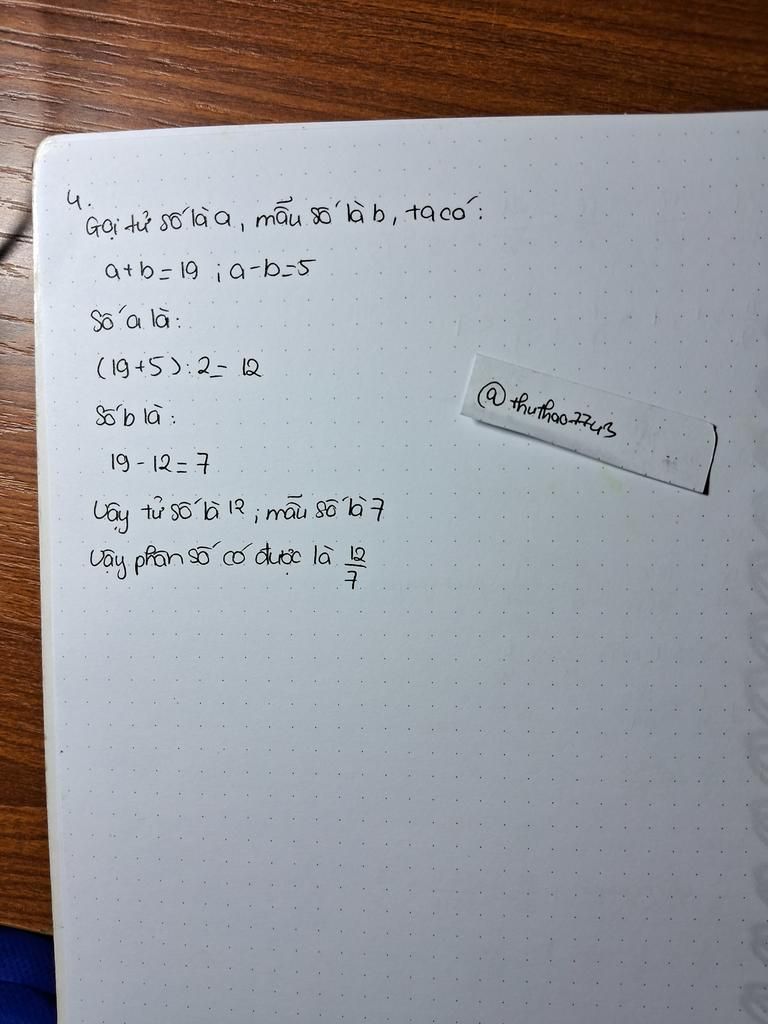 4.
Gọi tử số là a, mẫu số là b, ta có:
a+b=19 ; a-b=5
Số a là:
(19+5):2= 12
Số b là:
19-12=7
Vậy tử số là 12, mẫu số là 7
Vậy phân số có được là 12/7
@thuthao7743